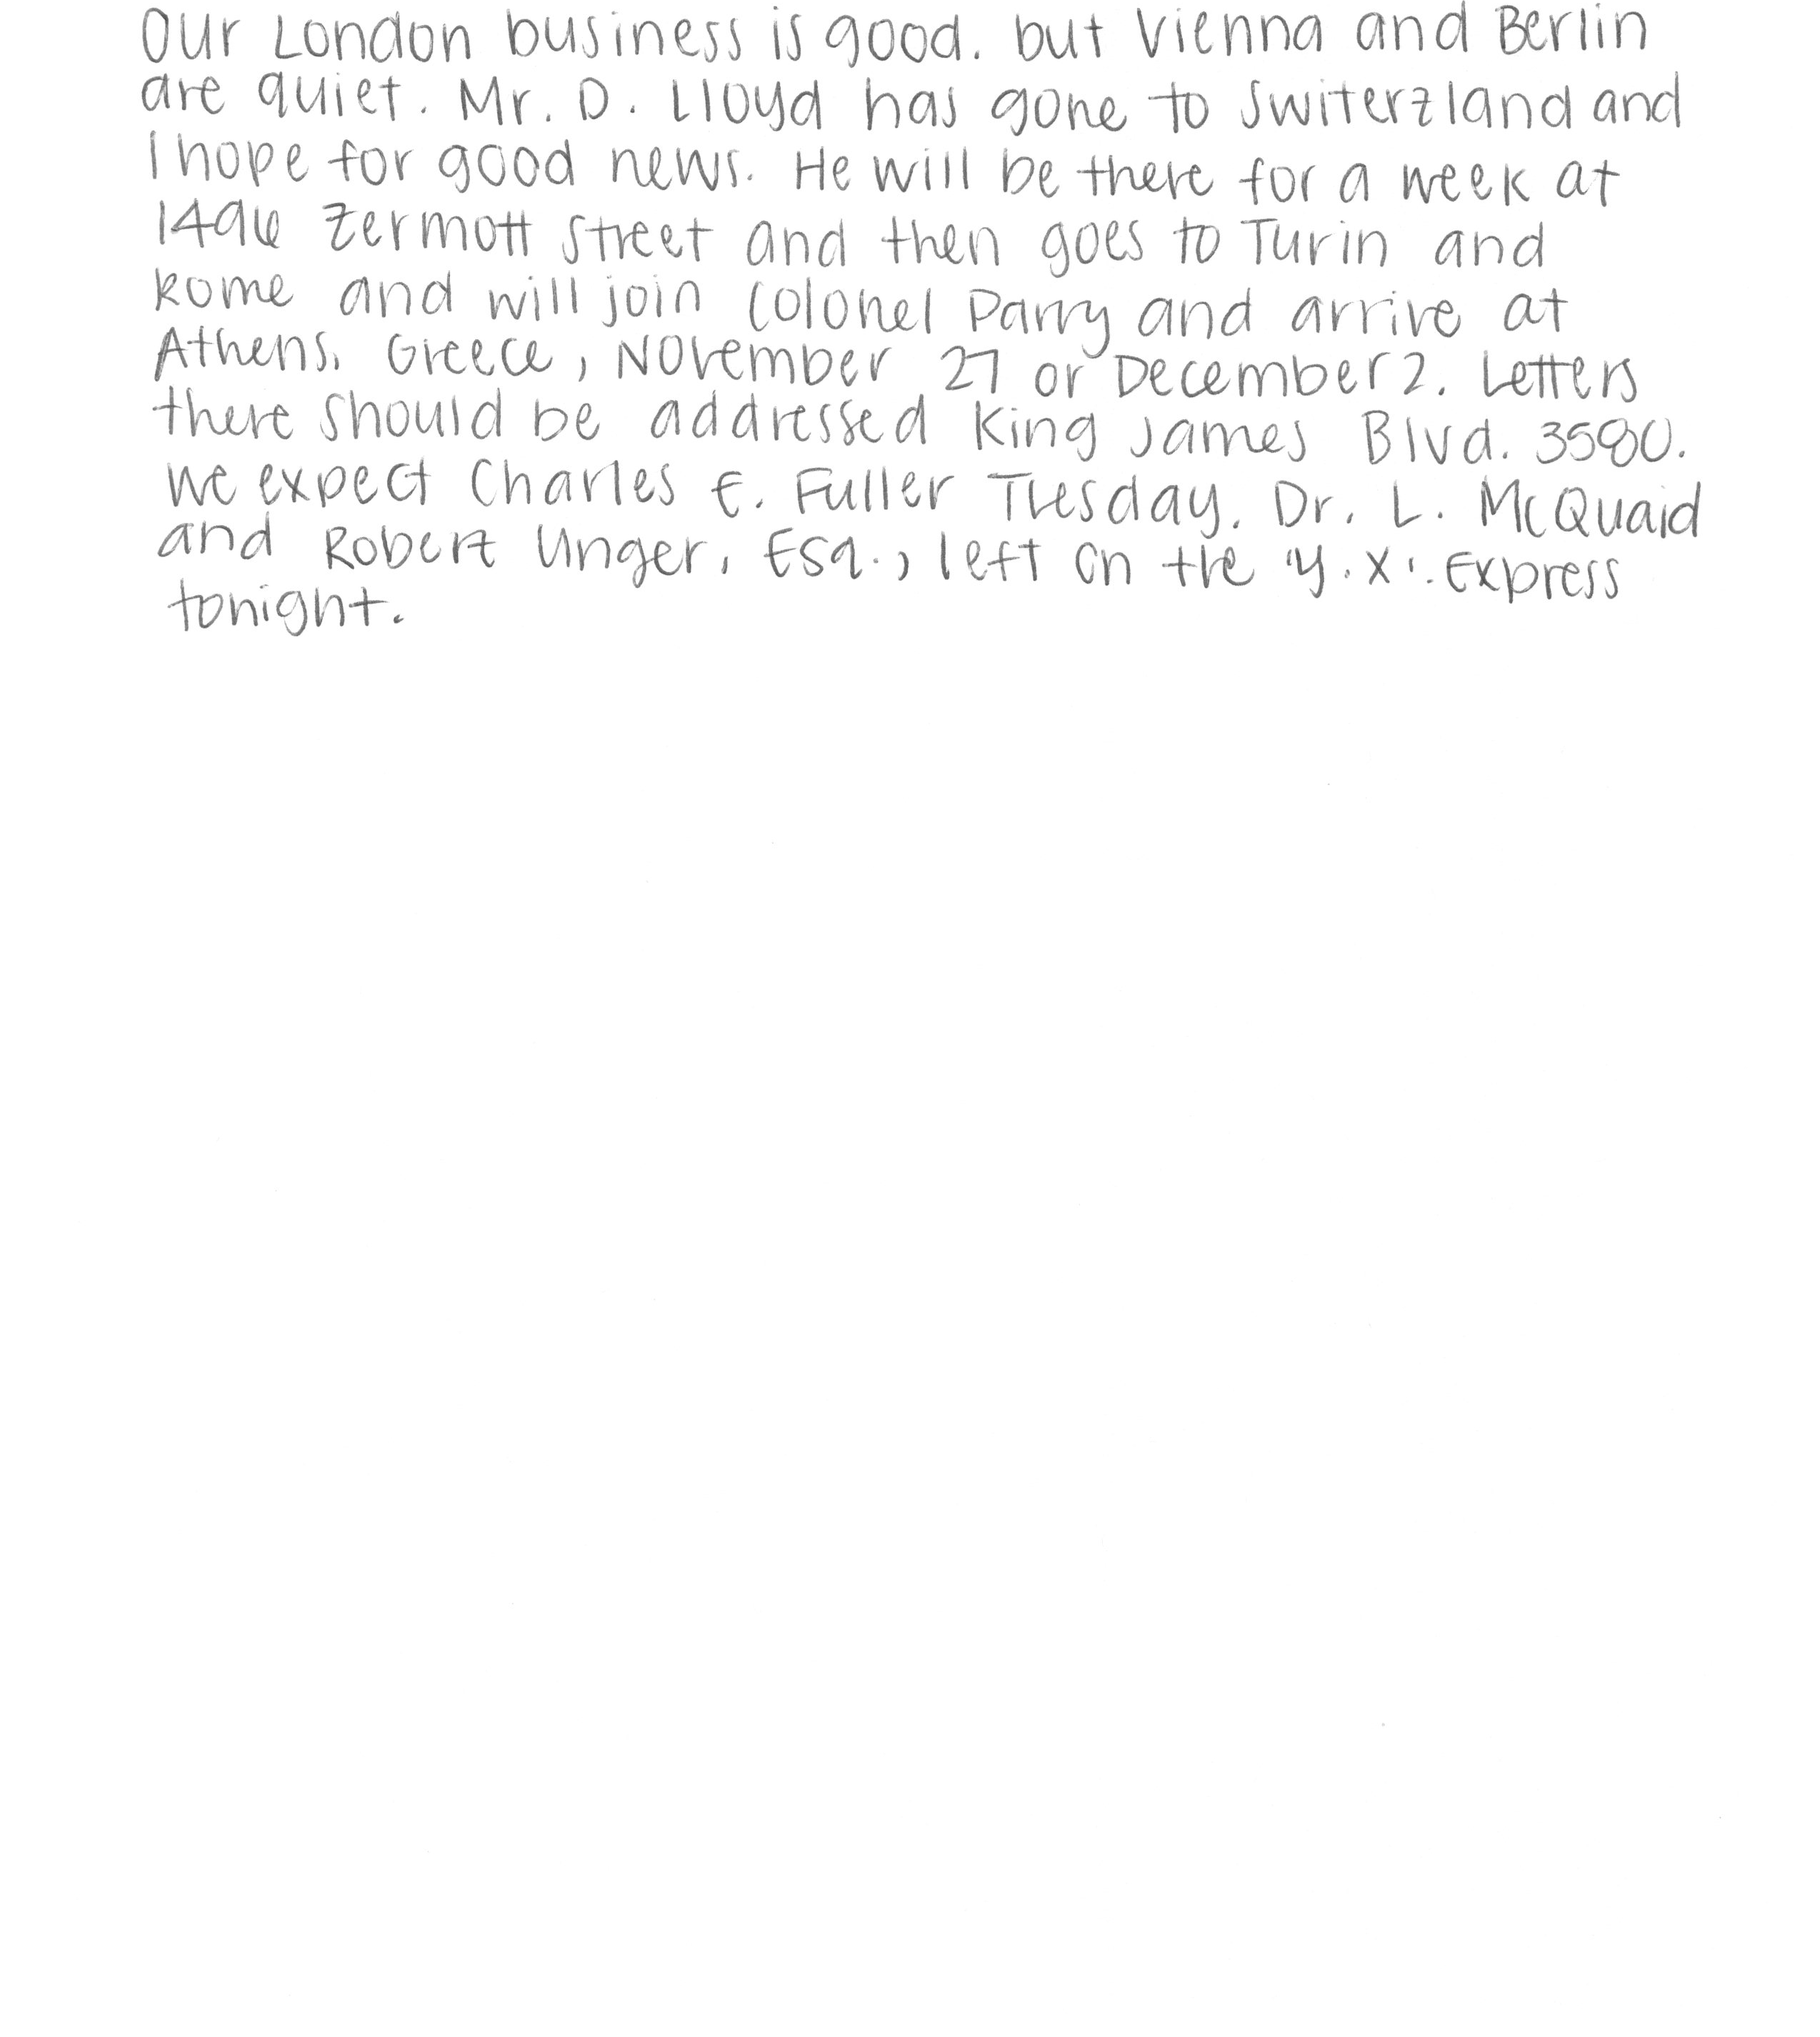 Our London business is good. but Vienna and Berlin
are quiet. Mr. D. Lloyd has gone to Switerzland and
I hope for good news. He will be there for a week at
1496 Zermott Street and then goes to Turin and
Rome and will join Colonel Parry and arrive at
Athens, Greece, November 27 or December 2. Letters
there should be addressed King James Blvd. 3580.
We expect Charles E. Fuller Tuesday. Dr. L. McQuaid
and Robert Unger, Esq., left on the 'Y.X'. Express
tonight.